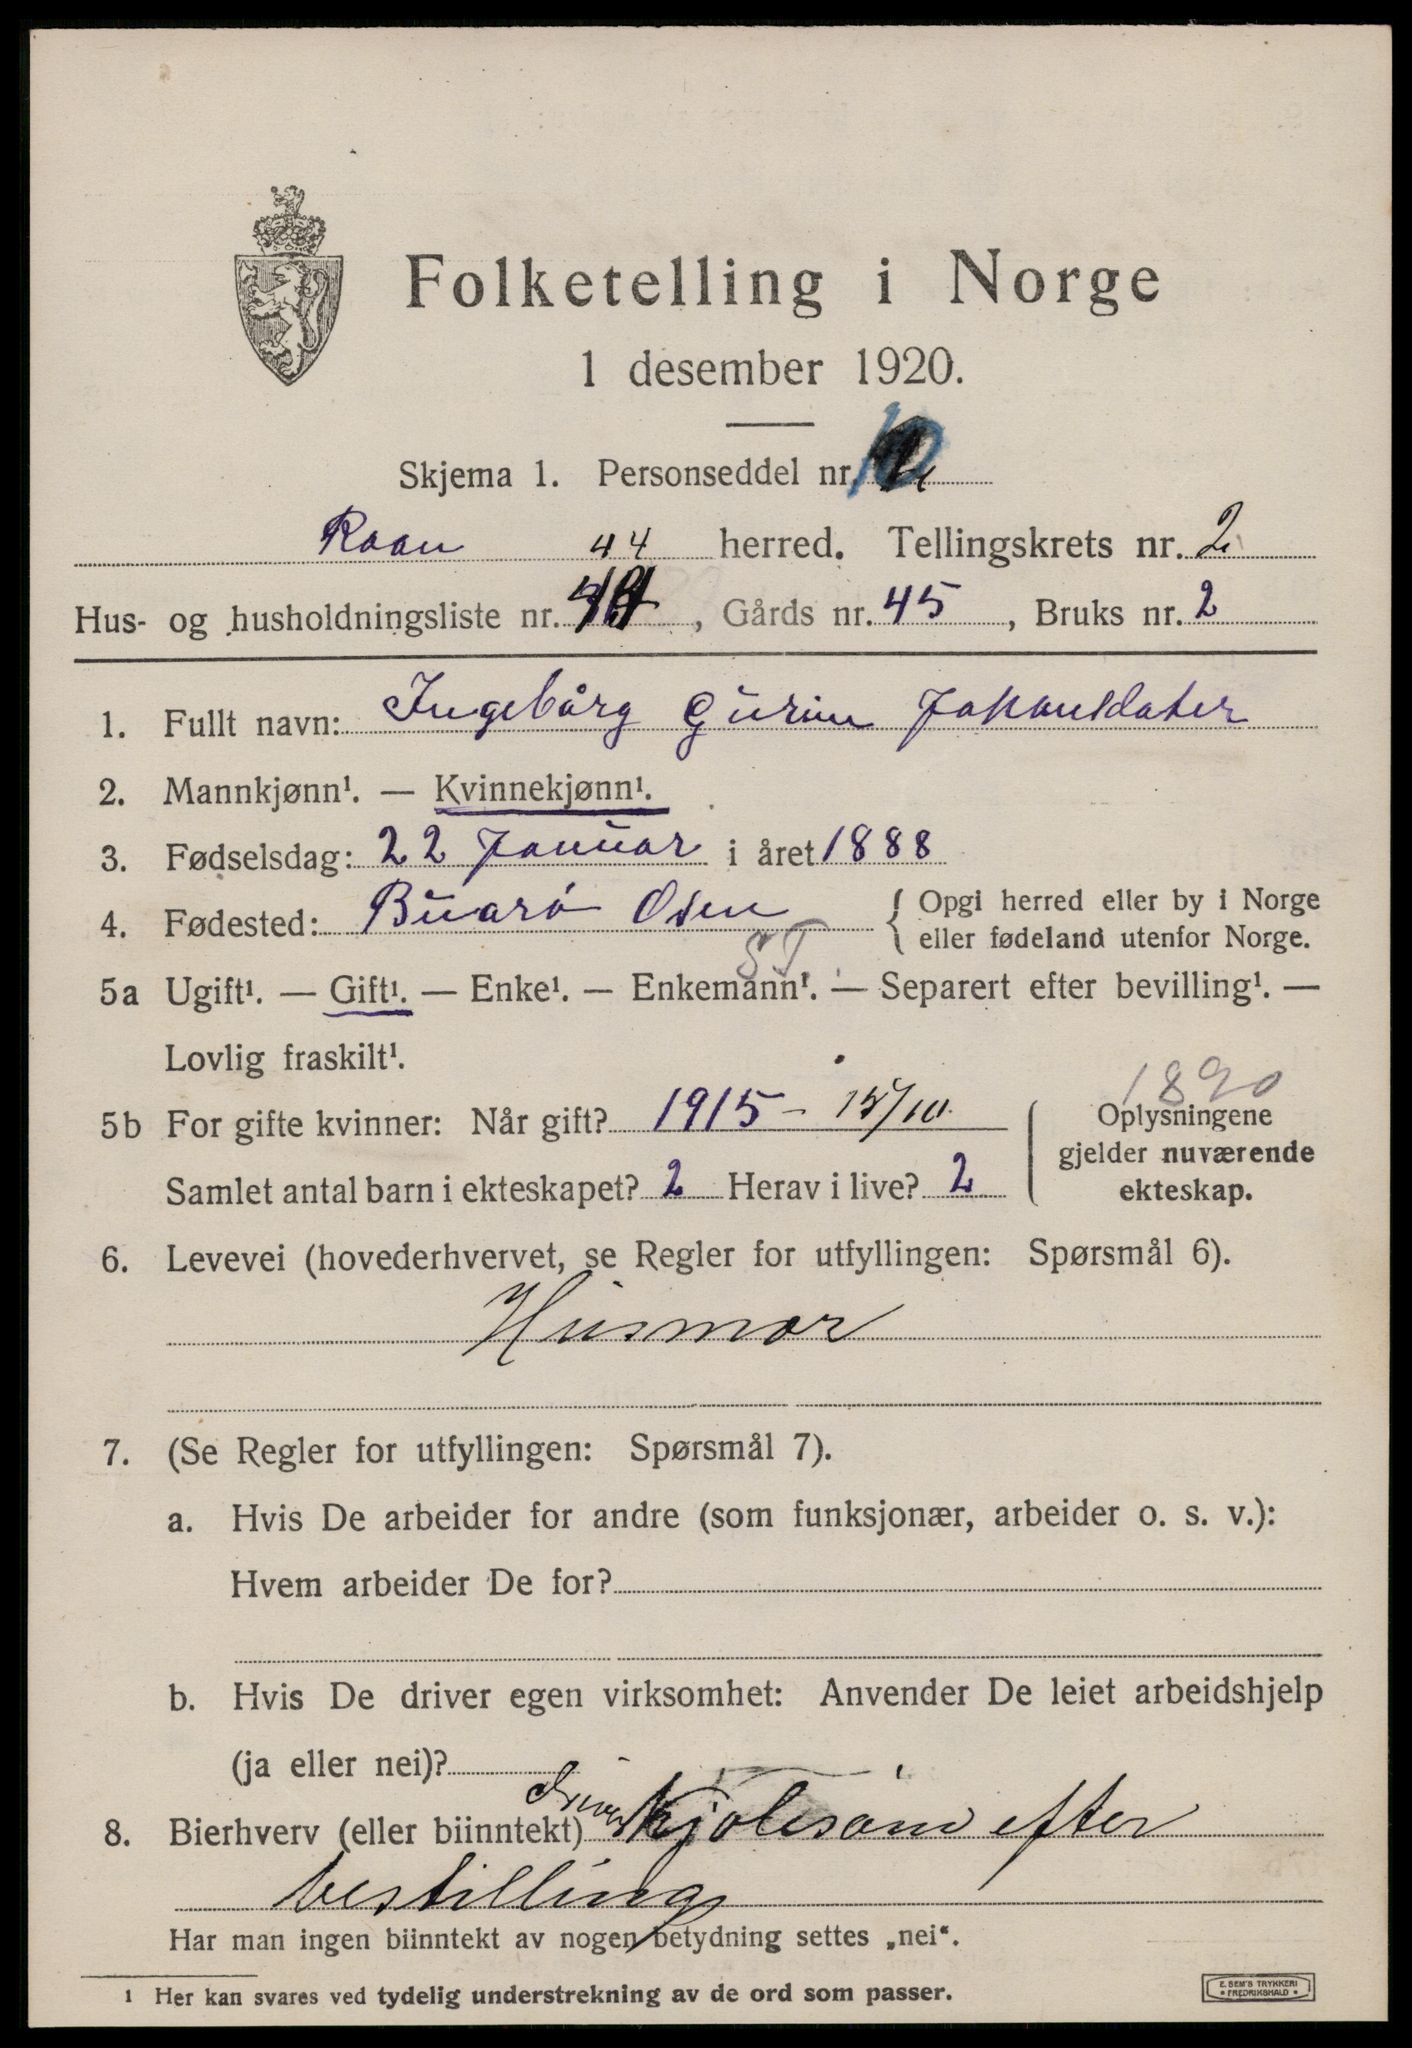 Folketelling i Norge
1 desember 1920.
Skjema 1. Personseddel nr. 10
Roan 44 herred. Tellingskrets nr. 2
Hus- og husholdningsliste nr. , Gårds nr. 45, Bruks nr. 2
1. Fullt navn: Ingebårg Gurine Johansdater
2. Mannkjønn¹. — Kvinnekjønn¹.
3. Fødselsdag: 22 Januar i året 1888
4. Fødested: Buarø Osen { Opgi herred eller by i Norge
eller fødeland utenfor Norge.
ST.
5a Ugift¹. — Gift¹. — Enke¹. — Enkemann¹. — Separert efter bevilling¹. —
Lovlig fraskilt¹.
1890
5b For gifte kvinner: Når gift? 1915 - 15/10. { Oplysningene
gjelder nuværende
Samlet antal barn i ekteskapet? 2 Herav i live? 2 ekteskap.
6. Levevei (hovederhvervet, se Regler for utfyllingen: Spørsmål 6).
Husmor
7. (Se Regler for utfyllingen: Spørsmål 7).
a. Hvis De arbeider for andre (som funksjonær, arbeider o. s. v.):
Hvem arbeider De for?
b. Hvis De driver egen virksomhet: Anvender De leiet arbeidshjelp
(ja eller nei)?
8. Bierhverv (eller biinntekt) driver kjolesøm efter
bestilling
Har man ingen biinntekt av nogen betydning settes „nei“.
¹ Her kan svares ved tydelig understrekning av de ord som passer.
E. SEM'S TRYKKERI
• FREDRIKSHALD •